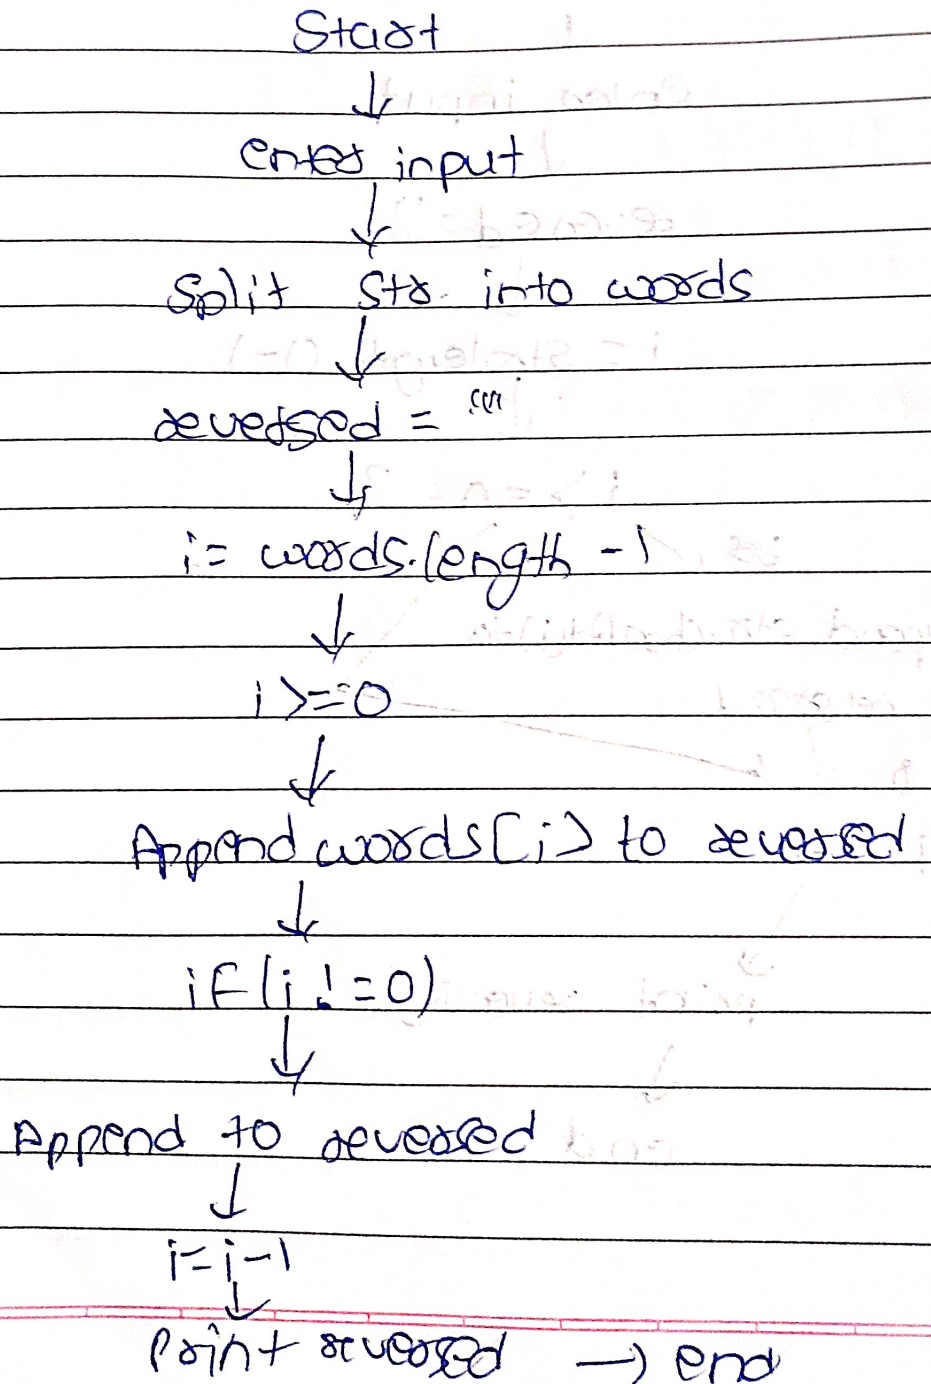 Start
↓
enter input
↓
Split str into words
↓
reversed = ""
↓
i = words.length - 1
↓
i >= 0
↓
Append words[i] to reversed
↓
if (i != 0)
↓
Append to reversed
↓
i = i - 1
↓
Print reversed → end